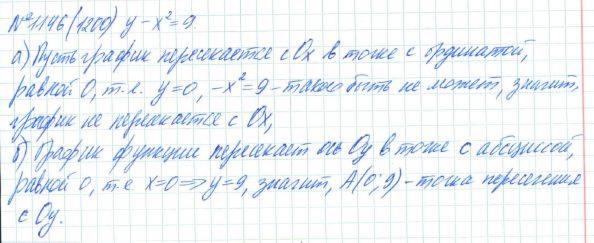 №1146(1200) y - x² = 9
а) Пусть график пересекается с Ox в точке с ординатой,
равной 0, т.е. y=0, -x²=9 - такого быть не может, значит,
график не пересекается с Ox,
б) График функции пересекает ось Oy в точке с абсциссой,
равной 0, т.е x=0 => y=9, значит, A(0; 9) - точка пересечения
с Oy.